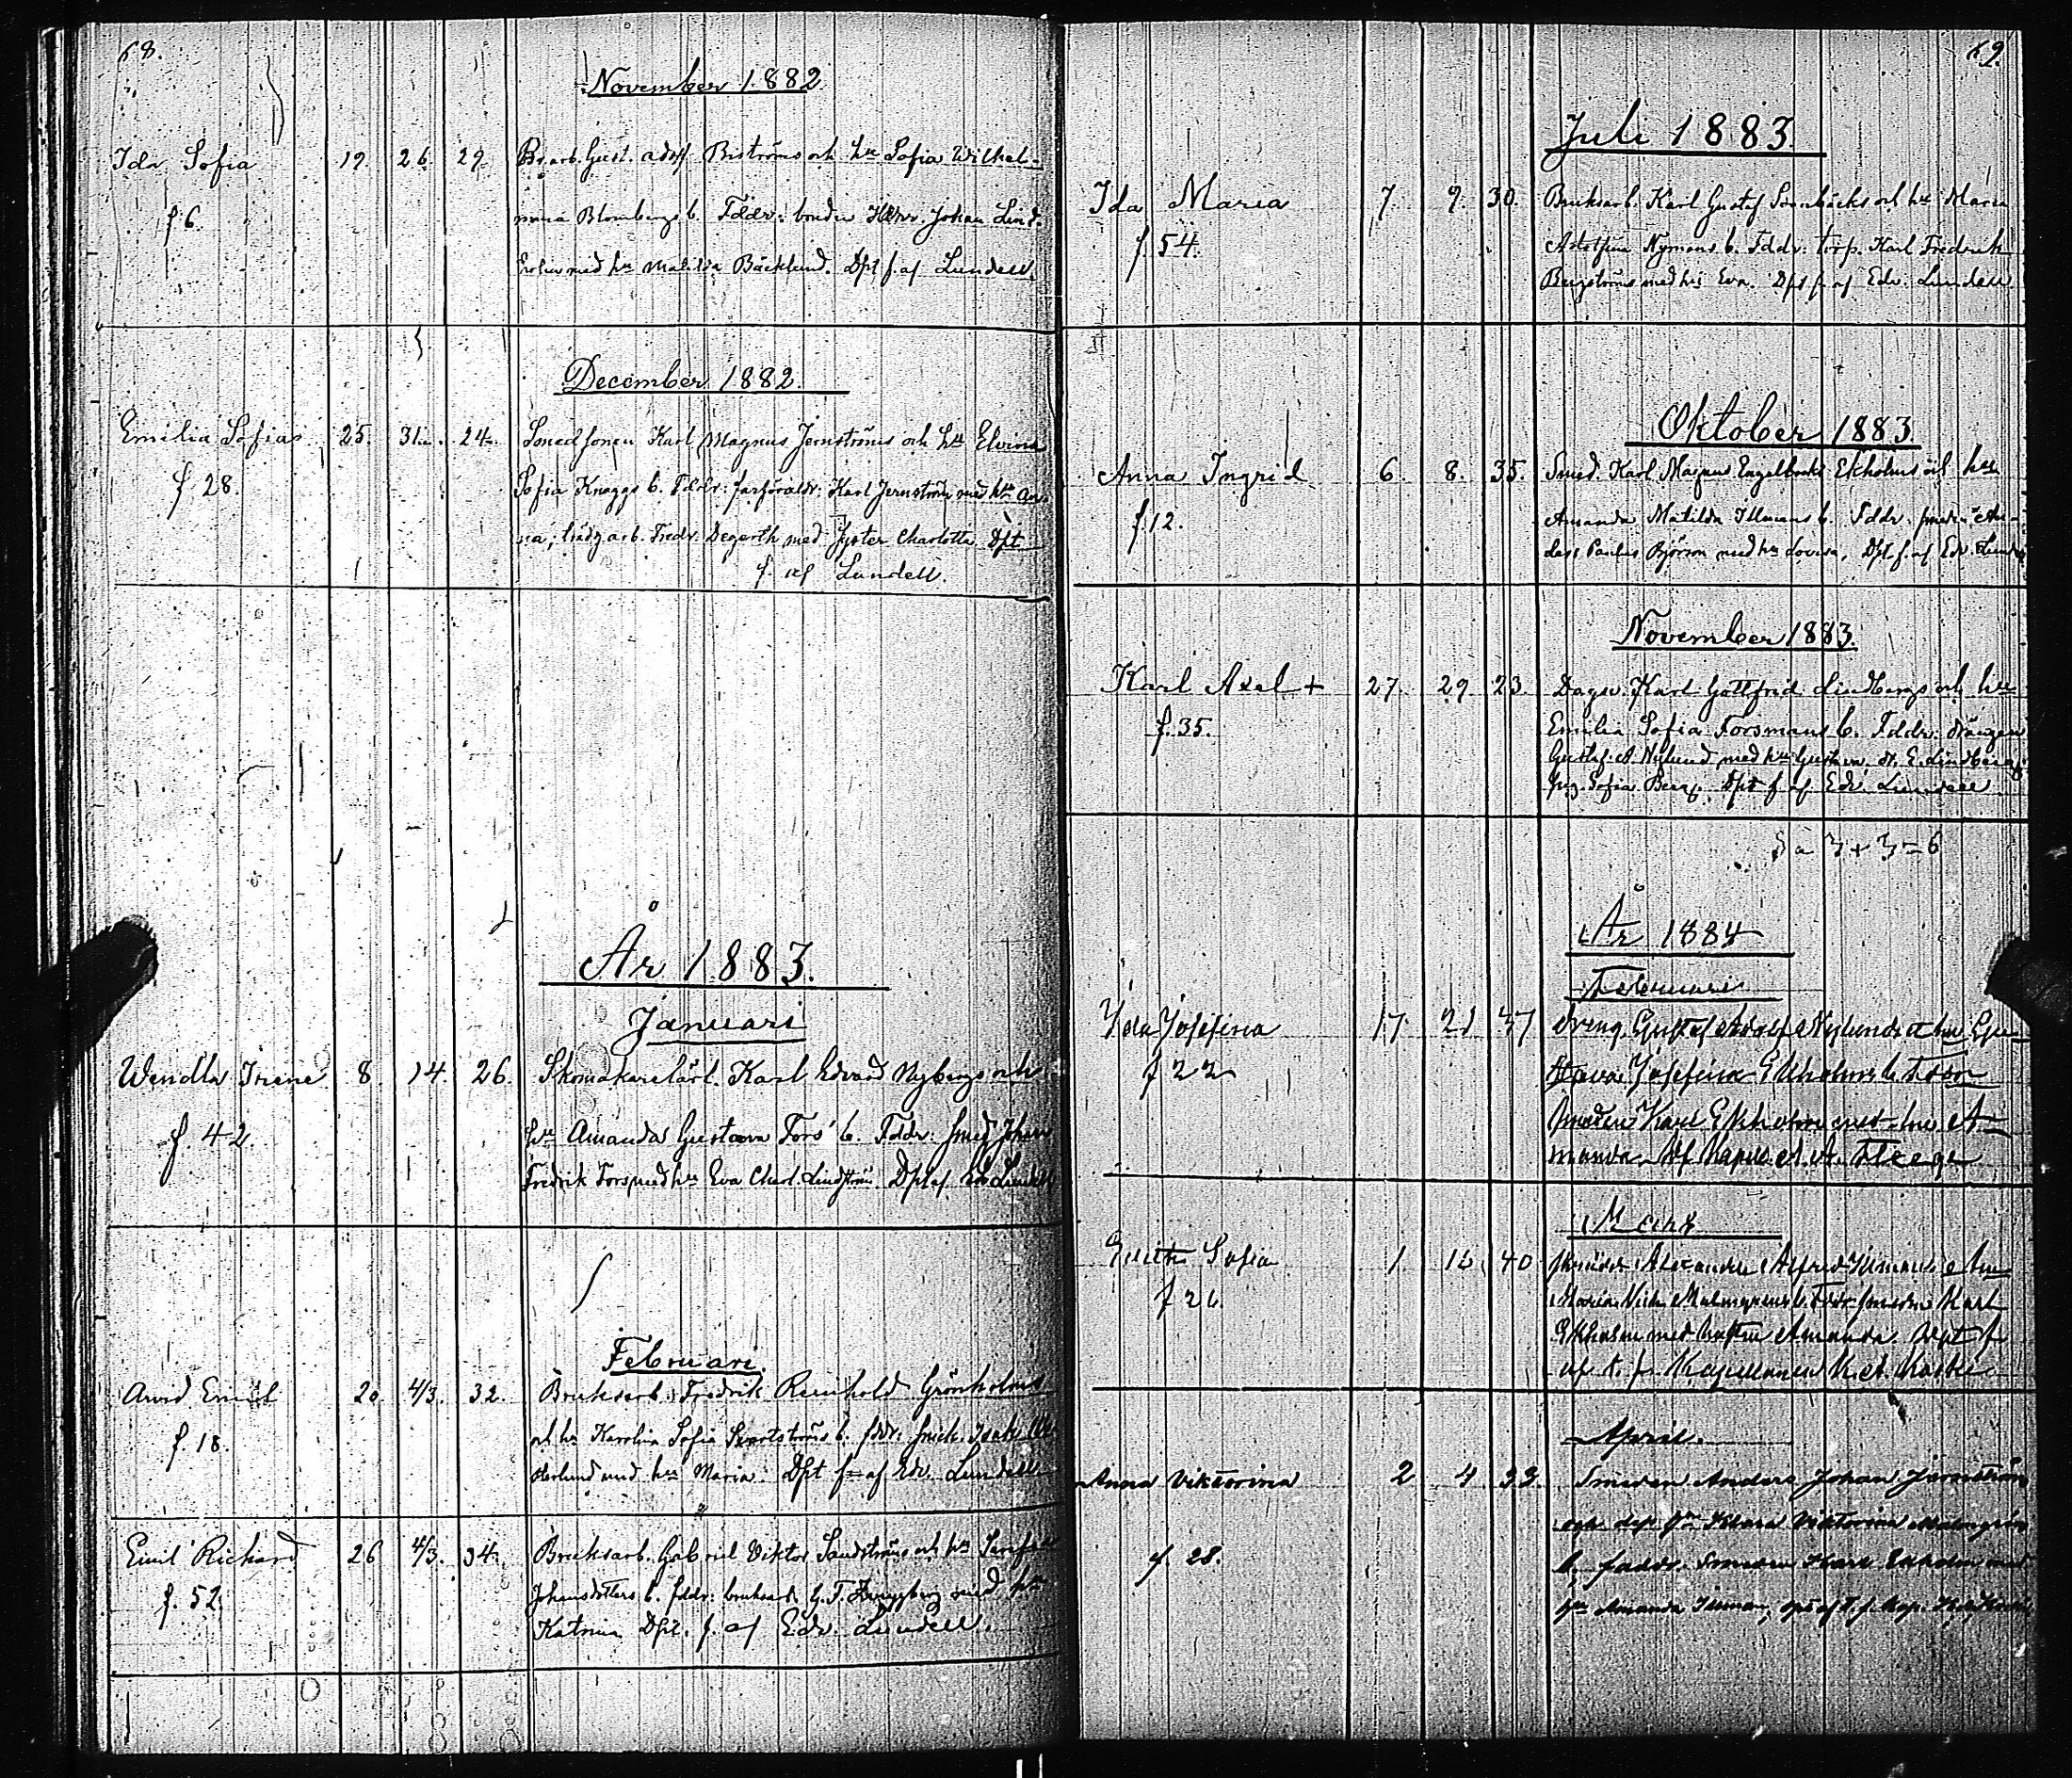 68.
November 1882
Ida Sofia 19. 26. 29. Br.arb. Gust. Adolf Biströms och h:u Sofia Wilhel-
f. 6. mina Blombergs b. Fddr: bonden Johan Lind-
med h:u Matilda Bäcklund. Dpt f. af Lundell.
December 1882.
Emilia Sofia 25. 31. 24. Smedsonen Karl Magnus Jernströms och h:u Elvira
f. 28. Sofia Knaggs b. Fddr: farföräldr: Karl Jernström med h:u An-
na; arb. Fredr. Degerth med syster Charlotta. Dpt
f. af Lundell.
År 1883.
Januari
Wendla Irene 8. 14. 26. Skomakarelärl. Karl Edvard Nybergs och
f. 42. h:u Amanda Gustava Fors' b. Fddr: smed Johan
Fredrik Fors med h:u Eva Charl. Lindström. Dpt af Edv. Lundell
Februari.
Arvid Emil 20. 4/3. 32. Bruksarb. Fredrik Reinhold Grönholms
f. 18. och h:u Karolina Sofia b. fddr: Isak
med h:u Maria. Dpt f. af Edv. Lundell
Emil Richard 26 4/3. 34. Bruksarb. Gabriel Viktor Sandströms och h:u
f. 52. Johansdotters b. fddr: G. F. med h:u
Katrina Dpt. f. af Edv. Lundell.
69.
Juli 1883.
Ida Maria 7. 9. 30. Bruksarb. Karl Gustaf och h:u Maria
f. 54. Adolfina Nymans b. Fddr: torp. Karl Fredrik
Bergströms med h:u Eva. Dpt f. af Edv. Lundell
Oktober 1883.
Anna Ingrid 6. 8. 35. Smed. Karl Magnus Engelbrekt Ekholms och h:u
f. 12. Amanda Matilda Illmans b. Fddr. smeden
Paulus Björson med h:u Lovisa. Dpt. f. af Edv. Lundell
November 1883.
Karl Axel + 27. 29. 23. Dagsv. Karl Gottfrid Lindbergs och h:u
f. 35. Emilia Sofia Forsmans b. Fddr. drängen
Gustaf A. Nylund med h:u Gustava. E. Lindberg
Sofia Berg. Dpt f. af Edv. Lundell
S:a 3 + 3 = 6
År 1884
Februari
Ida Josefina 17. 21 37 dreng. Gustaf Adolf Nylunds et hu Gu-
f 22 stava Josefina Ekholms b. Fddr
smeden Karl Ekholm med hu A-
manda. Af Kapell.
Mars
Edith Sofia 1 16 40 Alexander Alfred Illmans et hu
f 26. Maria Malmgrens b. Fddr smeden Karl
Ekholm med hustru Amanda. Dpt f
af t. f. Kapellanen
April.
Anna Viktorina 2 4 33. Smeden Anders Johan Jernström
f. 28. och dess h:u Klara Viktorina Malmgrens
b. faddr. Smeden Karl Ekholm med
h:u Amanda Illman, dpt af t. f. Kap.